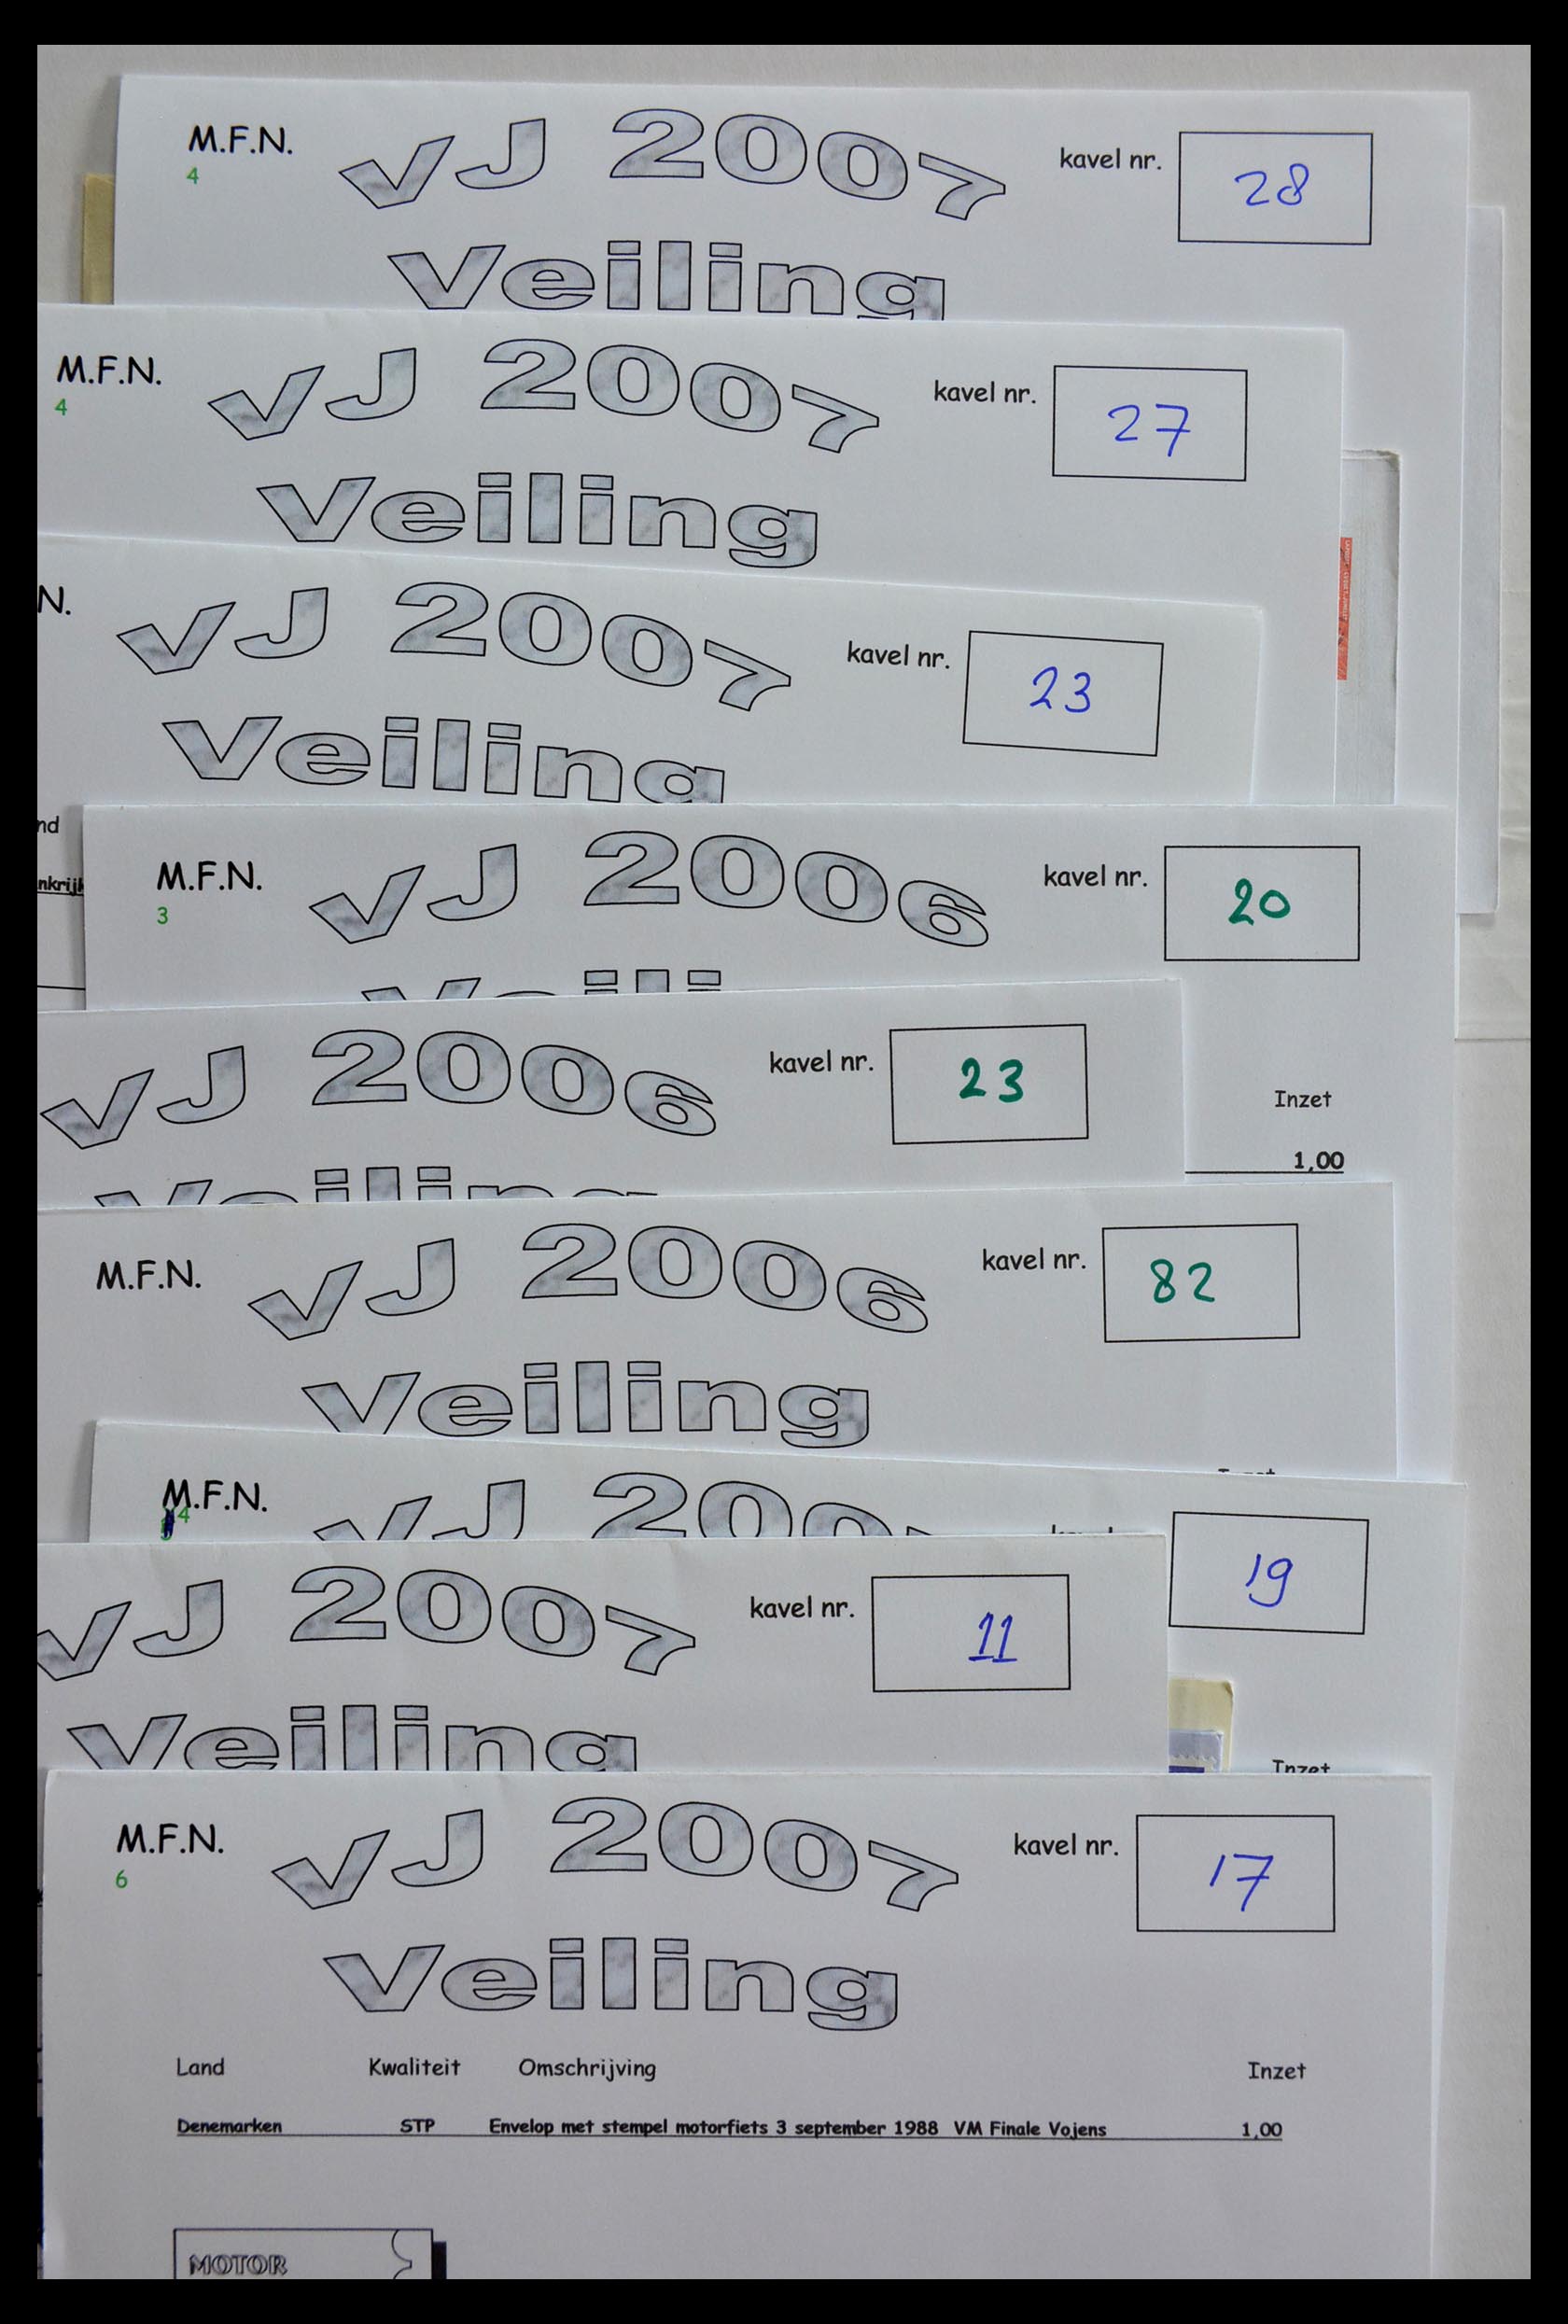 M.F.N. VJ 2007 kavel nr. 28
4
Veiling
M.F.N. VJ 2007 kavel nr. 27
4
Veiling
N. VJ 2007 kavel nr. 23
Veiling
nd
nkrijk
M.F.N. VJ 2006 kavel nr. 20
3
VJ 2006 kavel nr. 23
Inzet
1,00
Veiling
M.F.N. VJ 2006 kavel nr. 82
Veiling
M.F.N. VJ 200 19
4
VJ 2007 kavel nr. 11
Veiling
Inzet
M.F.N. VJ 2007 kavel nr. 17
6
Veiling
Land Kwaliteit Omschrijving Inzet
Denemarken STP Envelop met stempel motorfiets 3 september 1988 VM Finale Vojens 1,00
MOTOR